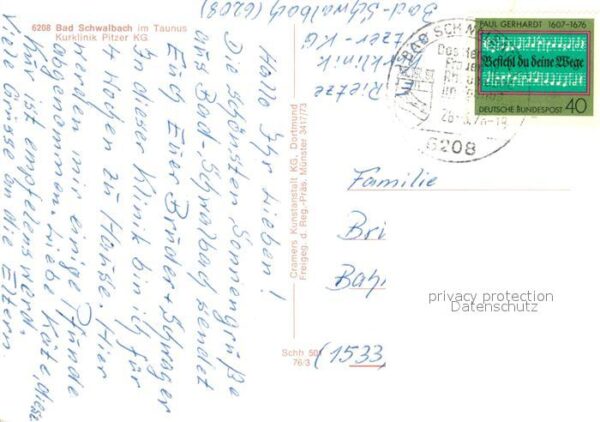 6208 Bad Schwalbach im Taunus
Kurklinik Pitzer KG
Hallo Ihr Lieben!
Die schönsten Sonnengrüße
aus Bad-Schwalbach sendet
Euch Euer Bruder + Schwager
In dieser Klinik bin ich für
4 Wochen zu Hause. Hier
werden mir einige Pfunde
abgenommen. Liebe Käte, diese
Kur ist empfelenswerd.
Viele Grüsse an die Eltern.
Cramers Kunstanstalt KG, Dortmund
Freigeg. d. Reg.-Präs. Münster 3417/73
Schh 501
76/3
Kurklinik
Pitzer-KG
Bad-Schwalbach (6208)
BAD SCHWALBACH
6208
PAUL GERHARDT 1607-1676
Befiehl du deine Wege
DEUTSCHE BUNDESPOST 40
Familie
Bri
Bahn
(1533)
privacy protection
Datenschutz